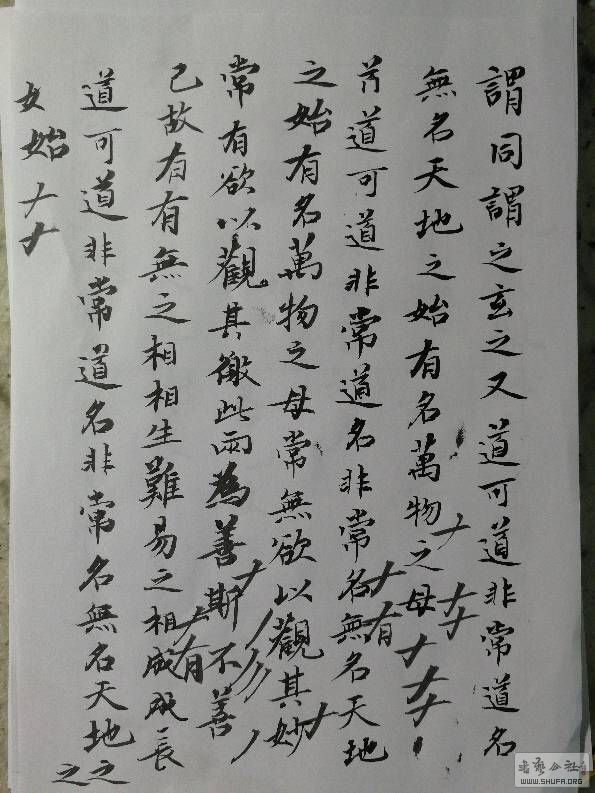 謂同謂之玄之又道可道非常道名
無名天地之始有名萬物之母
道可道非常道名非常名無名天地
之始有名萬物之母常無欲以觀其妙
常有欲以觀其徼此兩為善斯不善
已故有有無之相相生難易之相成成長
有
有
道可道道非常道名非常名無名天地之
之
女始ナナ
WWW.SHUFA.ORG